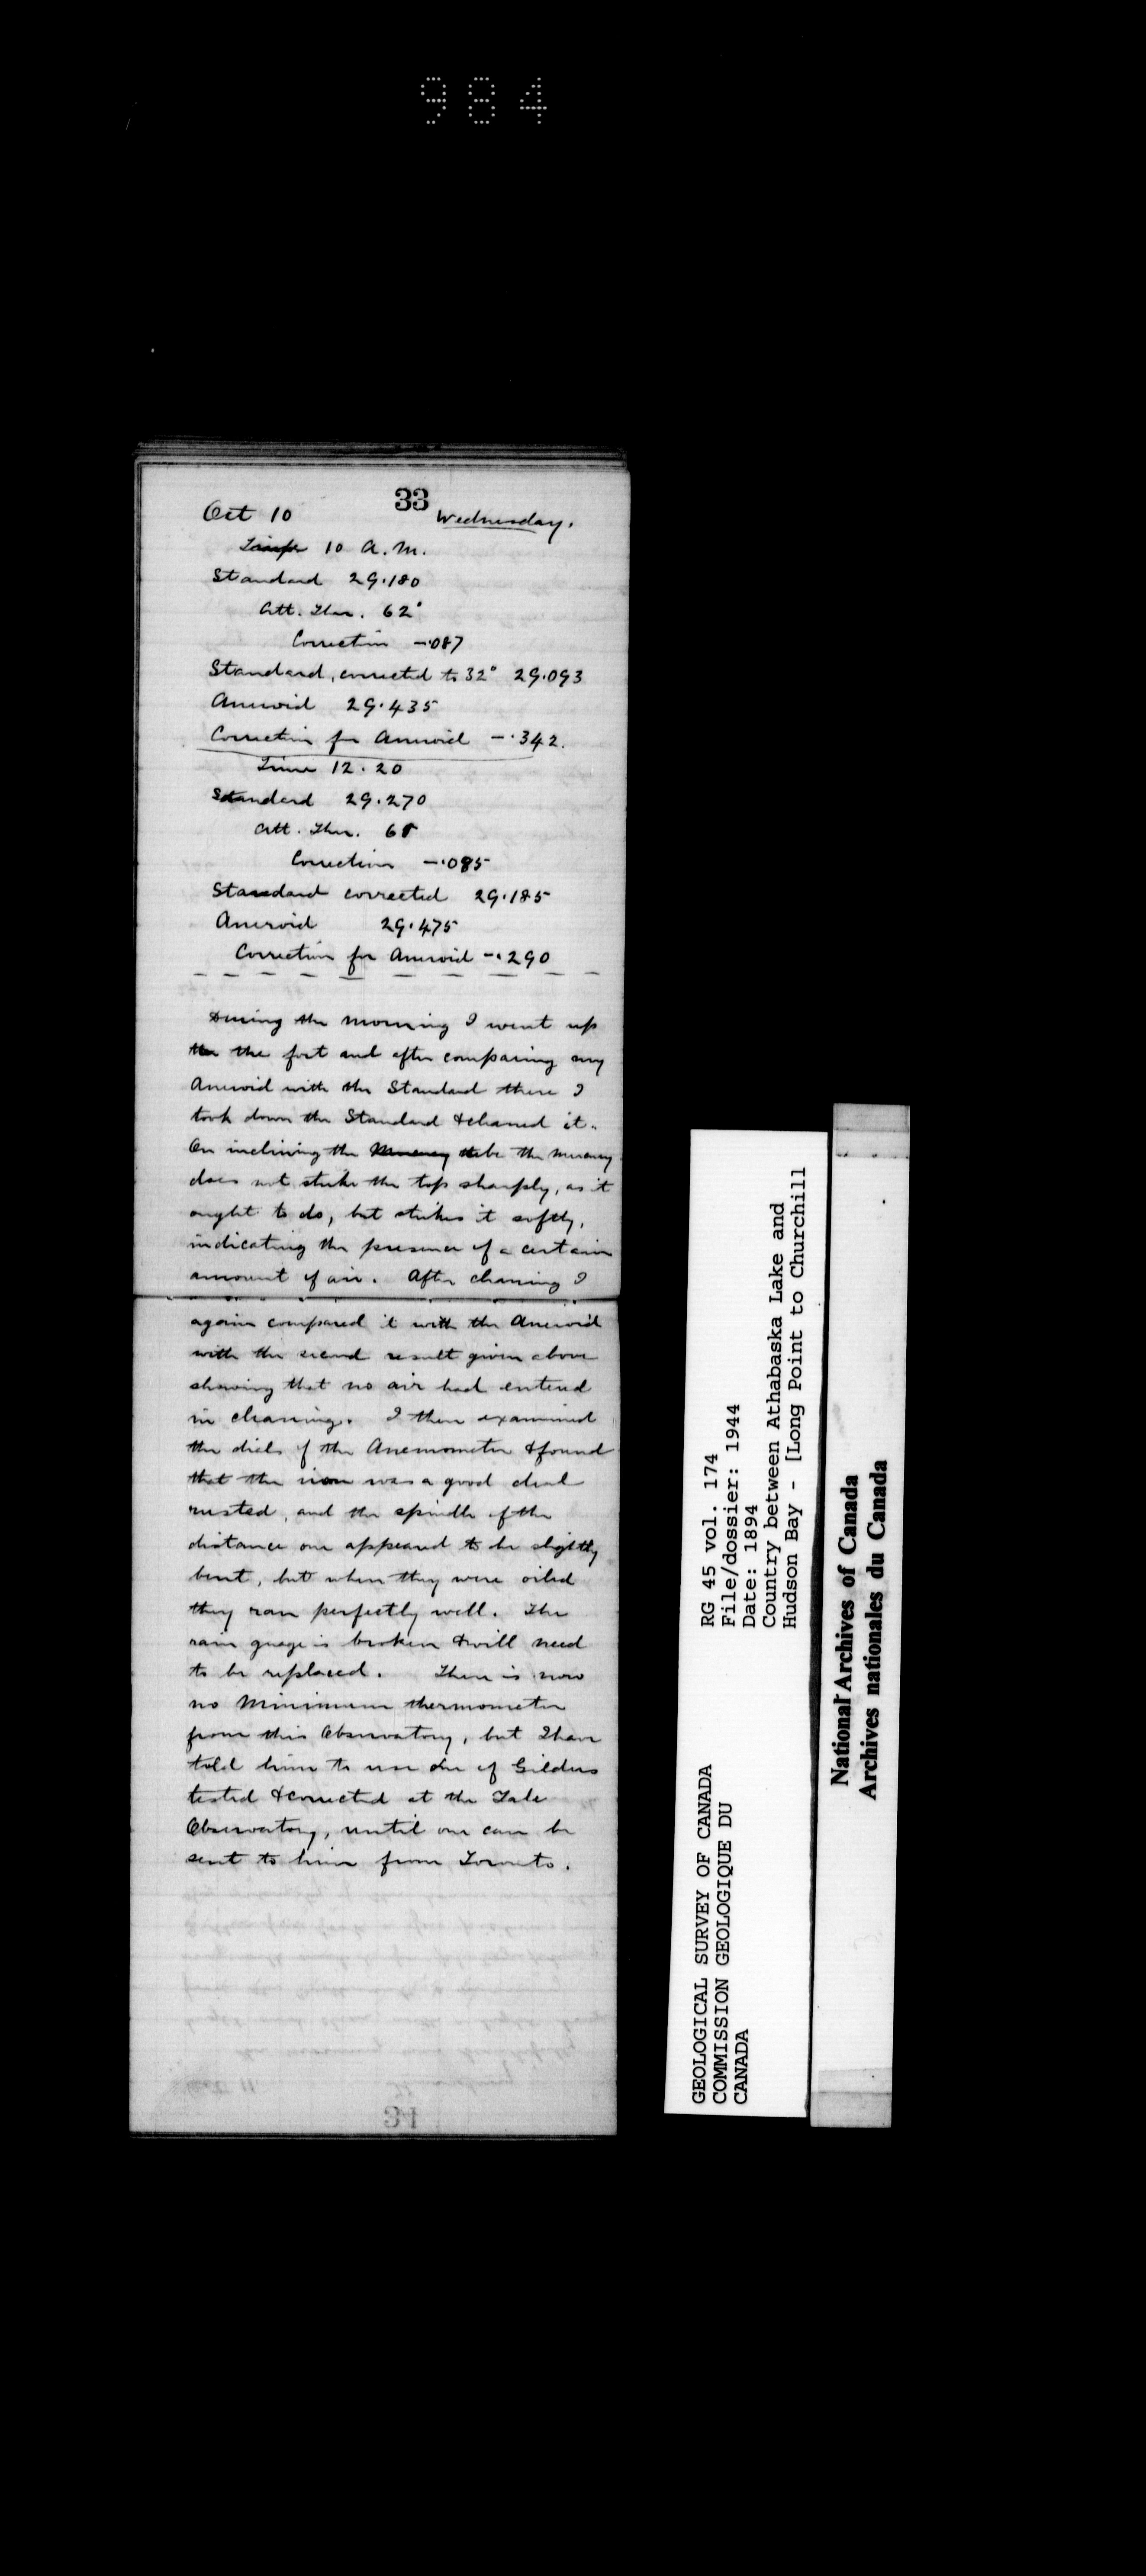 984
33
Oct 10 Wednesday.
Time 10 A.M.
Standard 29.180
Att. Ther. 62°
Correction -.087
Standard, corrected to 32° 29.093
Aneroid 29.435
Correction for Aneroid -.342.
Time 12.20
Standard 29.270
Att. Ther.
Correction -.085
Standard corrected 29.185
Aneroid 29.475
Correction for Aneroid -.290
During the morning I went up
the fort and after comparing my
Aneroid with the Standard there I
took down the Standard & cleaned it.
On inclining the Mercury tube the mercury
does not strike the top sharply, as it
ought to do, but strikes it softly,
indicating the presence of a certain
amount of air. After cleaning I
again compared it with the Aneroid
with the second result given above
showing that no air had entered
in cleaning. I then examined
the dials of the Anemometer & found
that the iron was a good deal
rusted, and the spindle of the
distance one appeared to be slightly
bent, but when they were oiled
they ran perfectly well. The
rain guage is broken & will need
to be replaced. There is now
no Minimum thermometer
from this Observatory, but I have
told him to use one of Gilders
tested & corrected at the Yale
Observatory, until one can be
sent to him from Toronto.
34
GEOLOGICAL SURVEY OF CANADA
COMMISSION GEOLOGIQUE DU
CANADA
RG 45 vol. 174
File/dossier: 1944
Date: 1894
Country between Athabaska Lake and
Hudson Bay - [Long Point to Churchill
National Archives of Canada
Archives nationales du Canada